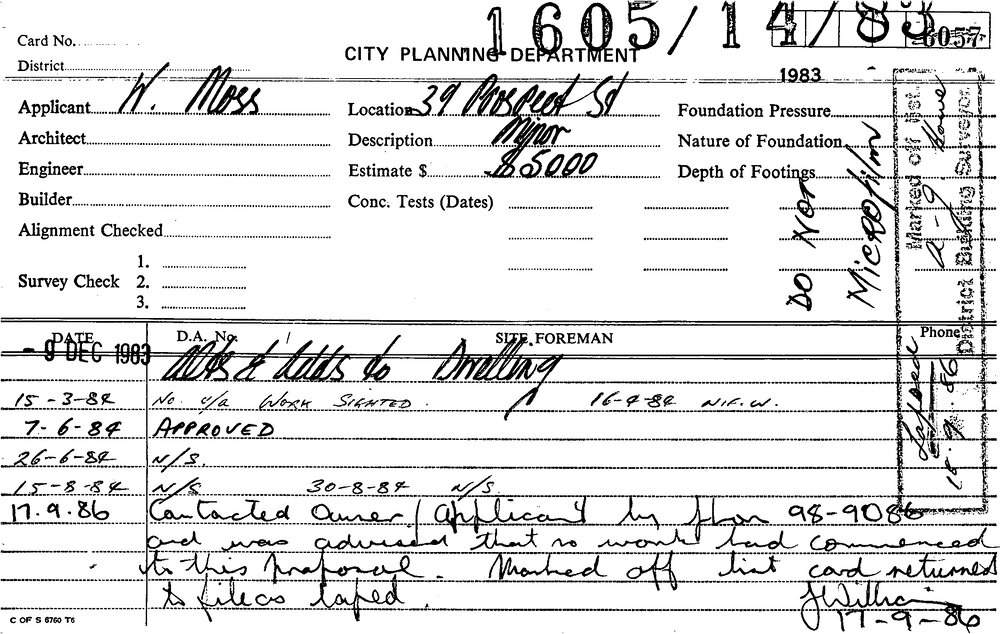 1605/14/83
6057
Card No.
CITY PLANNING DEPARTMENT
District
1983
Applicant W. Moss Location 39 Prospect St Foundation Pressure
Architect Description Minor Nature of Foundation
Engineer Estimate $ $5000 Depth of Footings
Builder Conc. Tests (Dates)
Alignment Checked
Survey Check 1.
2.
3.
DO NOT
MICROfilm
Marked off list.
District Building Surveyor.
DATE D.A. No. / SITE FOREMAN Phone
- 9 DEC 1983 Alts & Adds to Dwelling
15-3-84 No U/A WORK SIGHTED. 16-4-84 N.F.W.
7-6-84 APPROVED
26-6-84 N/S.
15-8-84 N/S 30-8-84 N/S
Lapsed
18.9.86
17.9.86 Contacted Owner/Applicant by phon 98-9086
and was advised that no work had commenced
to this proposal. Marked off list card returned
to file as lapsed.
17-9-86
C OF S 6760 T6